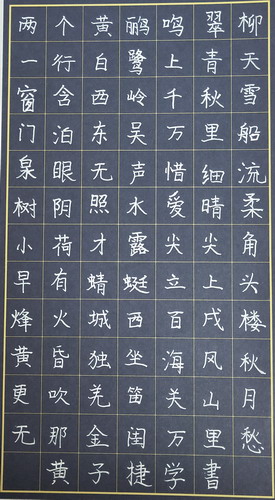 两个黄鹂鸣翠柳
一行白鹭上青天
窗含西岭千秋雪
门泊东吴万里船
泉眼无声惜细流
树阴照水爱晴柔
小荷才露尖尖角
早有蜻蜓立上头
烽火城西百戍楼
黄昏独坐海风秋
更吹羌笛关山月
无那金闺万里愁
黄子捷学書